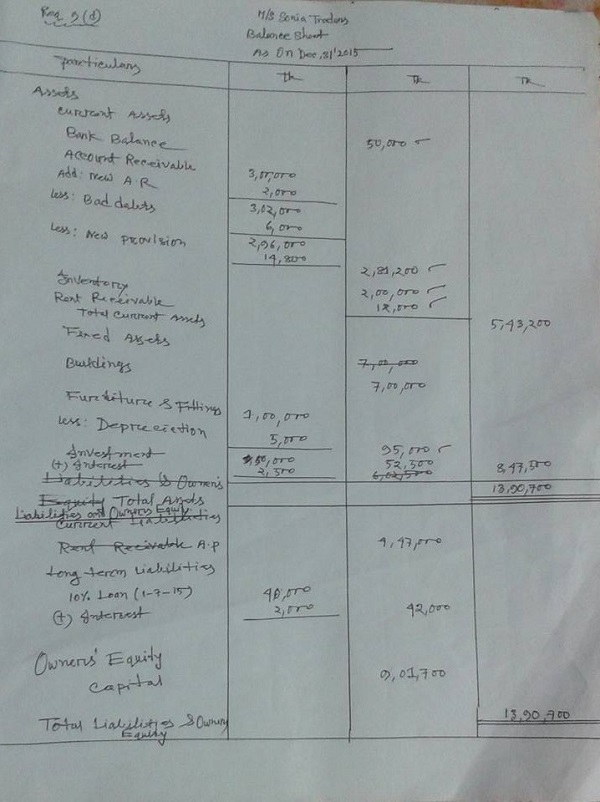 Req 5(d)
M/S Sonia Traders
Balance Sheet
As On Dec, 31' 2015
particulars Tk Tk Tk
Assets
Current Assets
Bank Balance 50,000
Account Receivable 3,00,000
Add: New A.R 2,000
3,02,000
less: Bad debts 6,000
2,96,000
less: New provision 14,800
2,81,200
Inventory 2,00,000
Rent Receivable 12,000
Total current Assets 5,43,200
Fixed Assets
Buildings 7,00,000
7,00,000
Furniture & Fittings 1,00,000
less: Depreciation 5,000
95,000
Investment 50,000 52,500
(+) Interest 2,500 8,47,500
Liabilities & Owner's
Equity Total Assets 13,90,700
Liabilities and Owners Equity
Current Liabilities
Rent Recivable A.P 4,47,000
Long term Liabilities
10% Loan (1-7-15) 40,000
(+) Interest 2,000 42,000
Owners' Equity
Capital 9,01,700
Total Liabilities & Owners 13,90,700
Equity